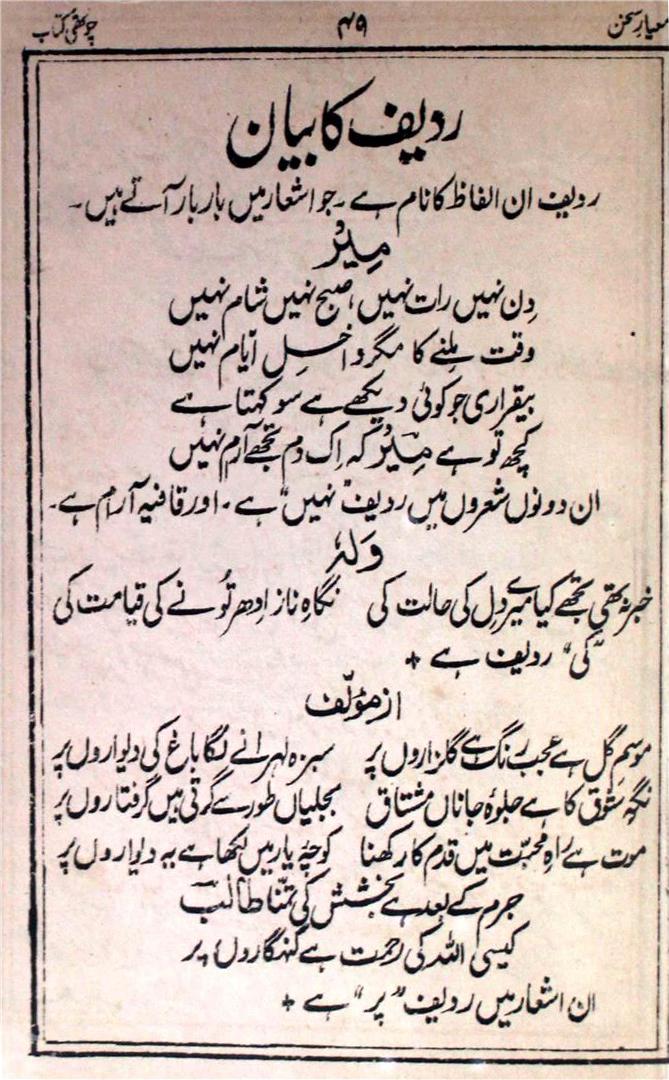 معیارِ سخن ۴۹ چوتھی کتاب
ردیف کا بیان
ردیف ان الفاظ کا نام ہے ۔ جو اشعار میں بار بار آتے ہیں ۔
میرؔ
دِن نہیں رات نہیں، صبح نہیں شام نہیں
وقت مِلنے کا مگر داخلِ ایّام نہیں
بیقراری جو کوئی دیکھے ہے سو کہتا ہے
کچھ تو ہے میرؔ کہ اِک دم تجھے آرام نہیں
ان دونوں شعروں میں ردیف "نہیں" ہے ۔ اور قافیہ آرام ہے ۔
وَلہٗ
خبر نہ تھی تجھے کیا میرے دِل کی حالت کی نگاہِ ناز اِدھر تُو نے کی قیامت کی
"کی" ردیف ہے +
از مؤلّف
موسمِ گل ہے عجب رنگ ہے گلزاروں پر سبزہ لہرانے لگا باغ کی دیواروں پر
نگہِ شوق کا ہے جلوۂ جاناں مشتاق بجلیاں طور سے گرتی ہیں گرفتاروں پر
موت ہے راہِ محبّت میں قدم کا رکھنا کوچۂ یار میں لکھا ہے یہ دیواروں پر
جرم کے بعد ہے بخشش کی تمنّا طالبؔ
کیسی اللہ کی رحمت ہے گنہگاروں پر
ان اشعار میں ردیف "پر" ہے +